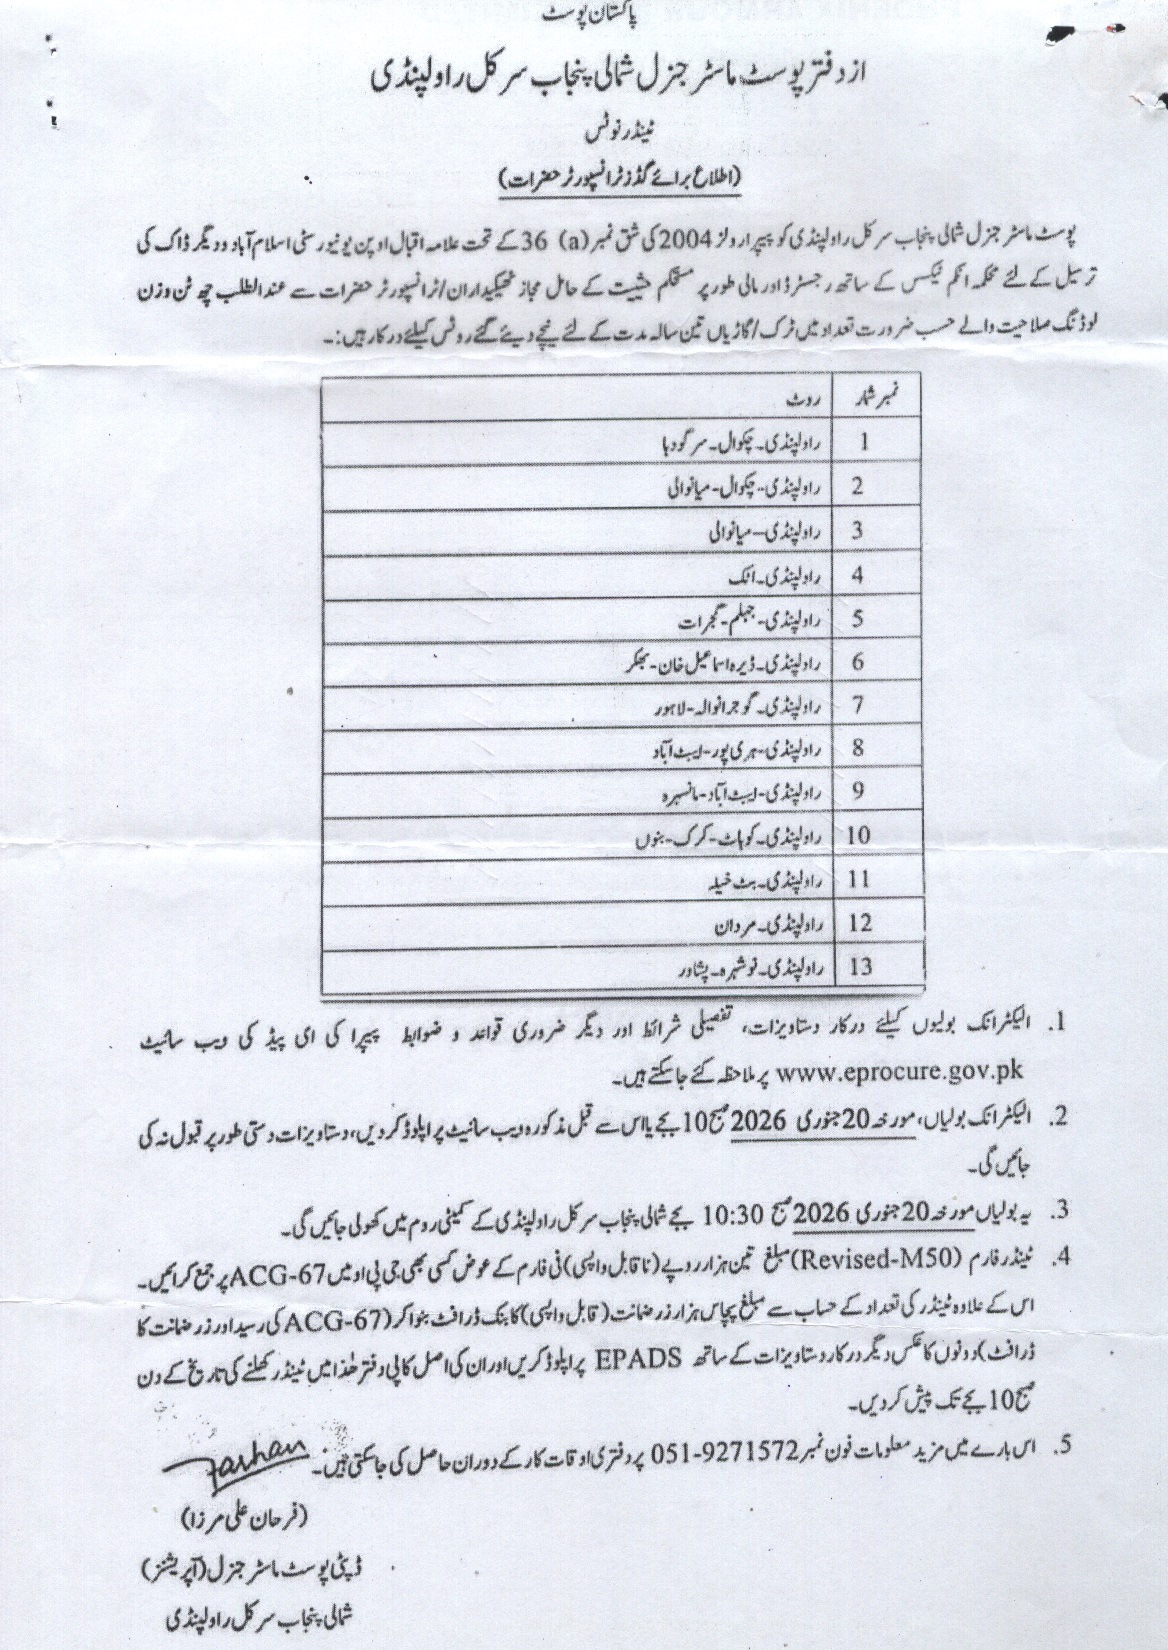 پاکستان پوسٹ
از دفتر پوسٹ ماسٹر جنرل شمالی پنجاب سرکل راولپنڈی
ٹینڈر نوٹس
(اطلاع برائے گڈز ٹرانسپورٹر حضرات)
پوسٹ ماسٹر جنرل شمالی پنجاب سرکل راولپنڈی کو پیپرا رولز 2004 کی شق نمبر (a) 36 کے تحت علامہ اقبال اوپن یونیورسٹی اسلام آباد و دیگر ڈاک کی
ترسیل کے لئے محکمہ انکم ٹیکس کے ساتھ رجسٹرڈ اور مالی طور پر مستحکم حیثیت کے حامل مجاز ٹھیکیداران/ٹرانسپورٹر حضرات سے عندالطلب چھ ٹن وزن
لوڈنگ صلاحیت والے حسب ضرورت تعداد میں ٹرک/گاڑیاں تین سالہ مدت کے لئے نیچے دیئے گئے روٹس کیلئے درکار ہیں:۔
نمبر شمار روٹ
1 راولپنڈی۔چکوال۔سرگودہا
2 راولپنڈی-چکوال-میانوالی
3 راولپنڈی–میانوالی
4 راولپنڈی۔اٹک
5 راولپنڈی-جہلم-گجرات
6 راولپنڈی۔ڈیرہ اسماعیل خان-بھکر
7 راولپنڈی۔گوجرانوالہ-لاہور
8 راولپنڈی-ہری پور-ایبٹ آباد
9 راولپنڈی-ایبٹ آباد-مانسہرہ
10 راولپنڈی۔کوہاٹ-کرک-بنوں
11 راولپنڈی۔بٹ خیلہ
12 راولپنڈی۔مردان
13 راولپنڈی۔نوشہرہ۔پشاور
1. الیکٹرانک بولیوں کیلئے درکار دستاویزات، تفصیلی شرائط اور دیگر ضروری قواعد و ضوابط پیپرا کی ای پیڈ کی ویب سائیٹ
www.eprocure.gov.pk پر ملاحظہ کئے جاسکتے ہیں۔
2. الیکٹرانک بولیاں، مورخہ 20 جنوری 2026 صبح 10 بجے یا اس سے قبل مذکورہ ویب سائیٹ پر اپلوڈ کر دیں، دستاویزات دستی طور پر قبول نہ کی
جائیں گی۔
3. یہ بولیاں مورخہ 20 جنوری 2026 صبح 10:30 بجے شمالی پنجاب سرکل راولپنڈی کے کمیٹی روم میں کھولی جائیں گی۔
4. ٹینڈر فارم (Revised-M50) مبلغ تین ہزار روپے (ناقابل واپسی) فی فارم کے عوض کسی بھی جی پی او میں ACG-67 پر جمع کرائیں۔
اس کے علاوہ ٹینڈر کی تعداد کے حساب سے مبلغ پچاس ہزار زر ضمانت (قابل واپسی) کا بنک ڈرافٹ بنوا کر (ACG-67 کی رسید اور زر ضمانت کا
ڈرافٹ) دونوں کا عکس دیگر درکار دستاویزات کے ساتھ EPADS پر اپلوڈ کریں اور ان کی اصل کاپی دفتر ھٰذا میں ٹینڈر کھلنے کی تاریخ کے دن
صبح 10 بجے تک پیش کر دیں۔
5. اس بارے میں مزید معلومات فون نمبر 051-9271572 پر دفتری اوقات کار کے دوران حاصل کی جاسکتی ہیں۔
Farhan
(فرحان علی مرزا)
ڈپٹی پوسٹ ماسٹر جنرل (آپریشنز)
شمالی پنجاب سرکل راولپنڈی